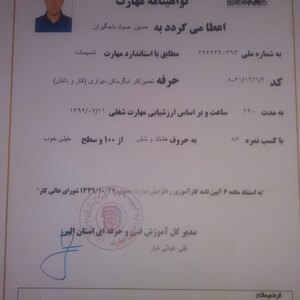 گواهینامه مهارت
اعطا می گردد به حسین صیاد باجگیران
به شماره ملی ۲۲۶۹۳۹۰۳۹۳ مطابق با استاندارد مهارت تاسیسات
کد ۸-۷۱/۱۳/۱/۲ حرفه تعمیرکار آبگرمکن دیواری (کار و دانش)
به مدت ۲۴۰ ساعت و بر اساس ارزشیابی مهارت شغلی ۱۳۹۶/۰۷/۱۱
با کسب نمره ۸۶ به حروف هشتاد و شش از ۱۰۰ و سطح خیلی خوب
"به استناد ماده ۶ آیین نامه کارآموزی و افزایش مهارت مصوب ۱۳۴۹/۱۰/۲۷ شورای عالی کار"
مدیر کل آموزش فنی و حرفه ای استان البرز
تقی
توضیحات: